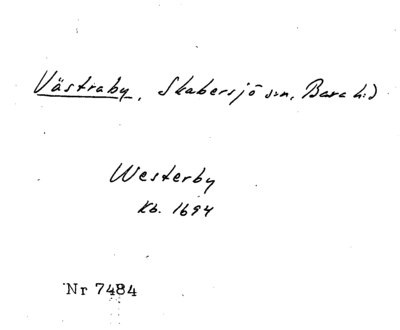 Västraby, Skabersjö sn, Bara hd
Westerby
Kb. 1694
Nr 7484